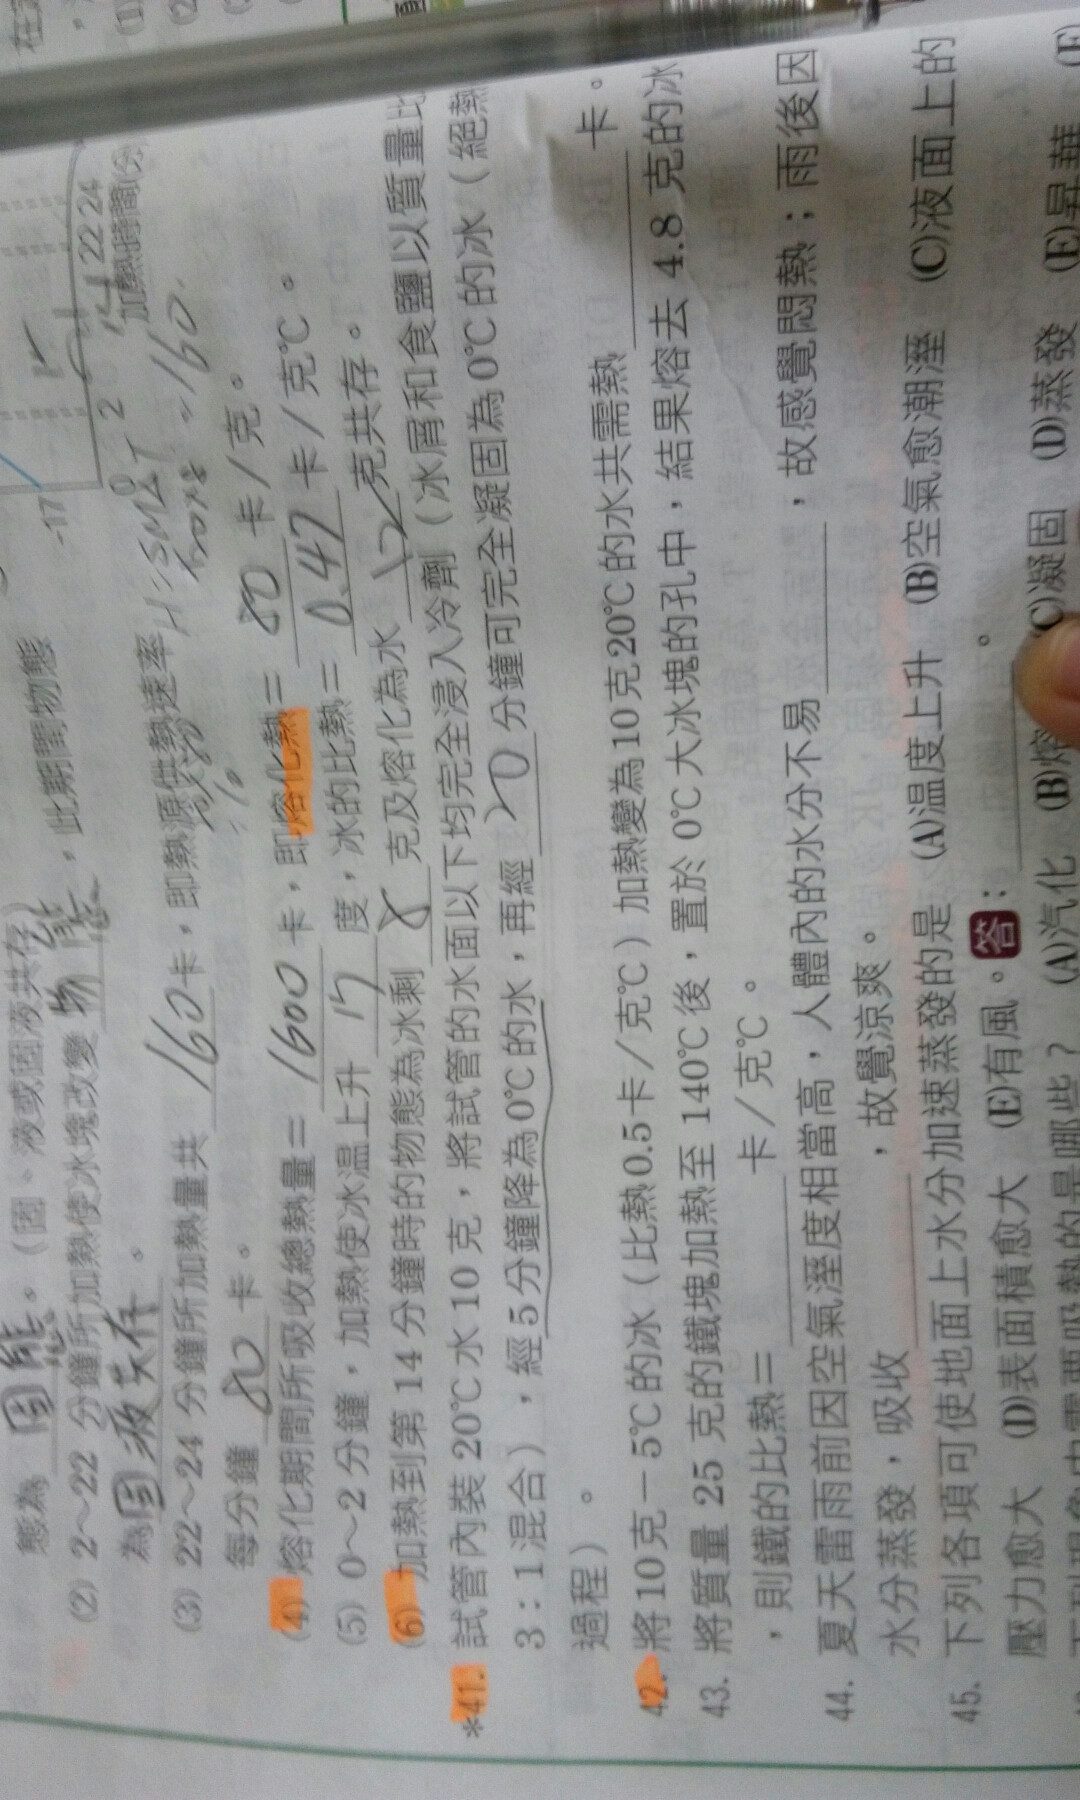 -17 0 2 14 22 24
加熱時間(分)
H=SM△T
=160
態為 固態 。(固、液或固液共存)
(2) 2～22 分鐘所加熱使冰塊改變 物態 ，此期間物態
為 固液共存 。
(3) 22～24 分鐘所加熱量共 160 卡，即熱源供熱速率
每分鐘 80 卡。
(4) 熔化期間所吸收總熱量＝ 1600 卡，即熔化熱＝ 80 卡／克。
(5) 0～2分鐘，加熱使冰溫上升 17 度，冰的比熱＝ 0.47 卡／克℃。
(6) 加熱到第 14 分鐘時的物態為冰剩 8 克及熔化為水 12 克共存。
*41. 試管內裝20℃水10克，將試管的水面以下均完全浸入冷劑（冰屑和食鹽以質量比
3：1混合），經5分鐘降為0℃的水，再經 20 分鐘可完全凝固為0℃的冰（絕熱
過程）。
42. 將10克－5℃的冰（比熱0.5卡／克℃）加熱變為10克20℃的水共需熱 卡。
43. 將質量 25 克的鐵塊加熱至 140℃後，置於 0℃大冰塊的孔中，結果熔去 4.8 克的冰
，則鐵的比熱＝ 卡／克℃。
44. 夏天雷雨前因空氣溼度相當高，人體內的水分不易 ，故感覺悶熱；雨後因
水分蒸發，吸收 ，故覺涼爽。
45. 下列各項可使地面上水分加速蒸發的是 (A)溫度上升 (B)空氣愈潮溼 (C)液面上的
壓力愈大 (D)表面積愈大 (E)有風。答： 。
(A)汽化 (B)熔 (C)凝固 (D)蒸發 (E)昇華 (F)